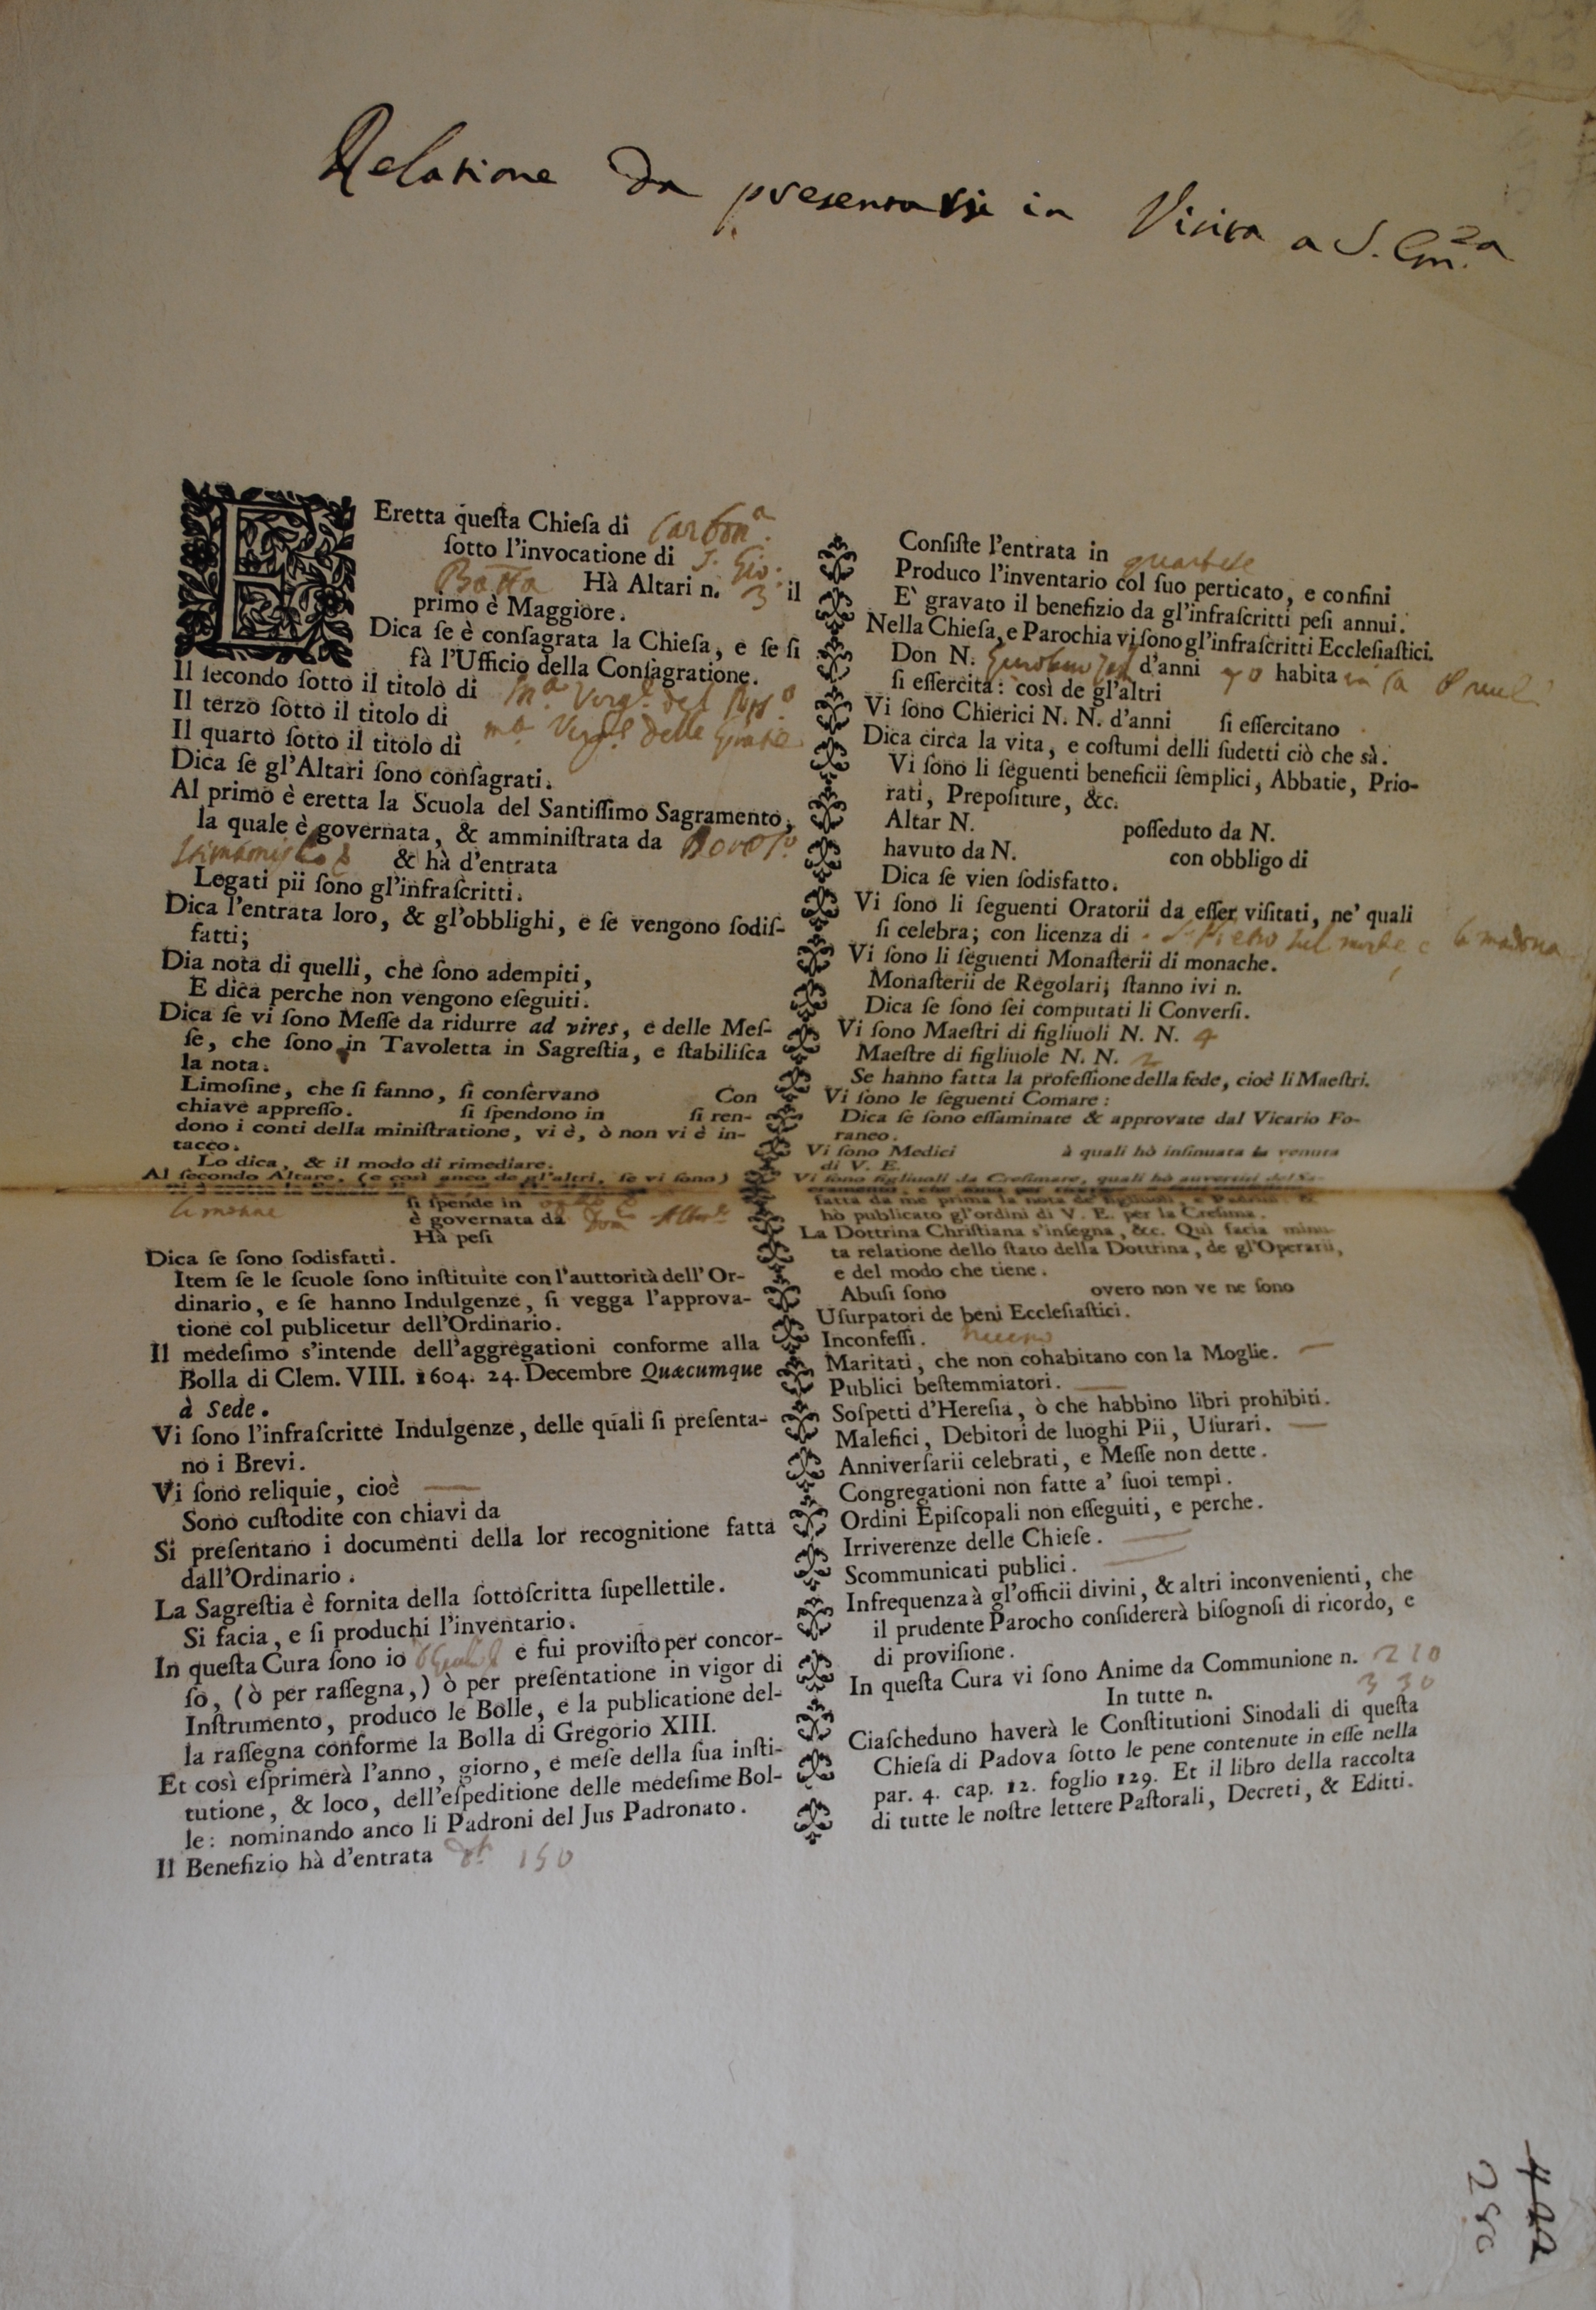 Relatione Da presentarsi in Visita a S. Em.za
E Eretta queſta Chieſa di Carbon.a
ſotto l'invocatione di S. Gio:
Batta Hà Altari n. 3 il
primo è Maggiore.
Dica ſe è conſagrata la Chieſa, e ſe ſi
fà l'Ufficio della Conſagratione.
Il ſecondo ſotto il titolo di
Il terzo ſotto il titolo di
Il quarto ſotto il titolo di
Dica ſe gl'Altari ſono conſagrati.
Al primo è eretta la Scuola del Santiſſimo Sagramento,
la quale è governata, & amminiſtrata da
& hà d'entrata
Legati pii ſono gl'infraſcritti.
Dica l'entrata loro, & gl'obblighi, e ſe vengono ſodiſ-
fatti;
Dia nota di quelli, che ſono adempiti,
E dica perche non vengono eſeguiti.
Dica ſe vi ſono Meſſe da ridurre ad vires, e delle Meſ-
ſe, che ſono in Tavoletta in Sagreſtia, e ſtabiliſca
la nota.
Limoſine, che ſi fanno, ſi conſervano Con
chiave appreſſo. ſi ſpendono in ſi ren-
dono i conti della miniſtratione, vi è, ò non vi è in-
tacco.
Lo dica, & il modo di rimediare.
Al ſecondo Altare, (e così anco de gl'altri, ſe vi ſono)
ſi ſpende in
è governata da
Hà peſi
Dica ſe ſono ſodisfatti.
Item ſe le ſcuole ſono inſtituite con l'auttorità dell' Or-
dinario, e ſe hanno Indulgenze, ſi vegga l'approva-
tione col publicetur dell'Ordinario.
Il medeſimo s'intende dell'aggregationi conforme alla
Bolla di Clem. VIII. 1604. 24. Decembre Quæcumque
à Sede.
Vi ſono l'infraſcritte Indulgenze, delle quali ſi preſenta-
no i Brevi.
Vi ſono reliquie, cioè
Sono cuſtodite con chiavi da
Si preſentano i documenti della lor recognitione fatta
dall'Ordinario.
La Sagreſtia è fornita della ſottoſcritta ſupellettile.
Si facia, e ſi produchi l'inventario.
In queſta Cura ſono io e fui proviſto per concor-
ſo, (ò per raſſegna,) ò per preſentatione in vigor di
Inſtrumento, produco le Bolle, e la publicatione del-
la raſſegna conforme la Bolla di Gregorio XIII.
Et così eſprimerà l'anno, giorno, e meſe della ſua inſti-
tutione, & loco, dell'eſpeditione delle medeſime Bol-
le: nominando anco li Padroni del Jus Padronato.
Il Benefizio hà d'entrata 150
Conſiſte l'entrata in quartese
Produco l'inventario col ſuo perticato, e confini
E` gravato il benefizio da gl'infraſcritti peſi annui.
Nella Chieſa, e Parochia vi ſono gl'infraſcritti Eccleſiaſtici.
Don N. d'anni habita in
ſi eſſercita: così de gl'altri
Vi ſono Chierici N. N. d'anni ſi eſſercitano
Dica circa la vita, e coſtumi delli ſudetti ciò che sà.
Vi ſono li ſeguenti beneficii ſemplici, Abbatie, Prio-
rati, Prepoſiture, &c.
Altar N. poſſeduto da N.
havuto da N. con obbligo di
Dica ſe vien ſodisfatto.
Vi ſono li ſeguenti Oratorii da eſſer viſitati, ne' quali
ſi celebra; con licenza di S. Pietro sul monte e la madona
Vi ſono li ſeguenti Monaſterii di monache.
Monaſterii de Regolari; ſtanno ivi n.
Dica ſe ſono ſei computati li Converſi.
Vi ſono Maeſtri di figliuoli N. N. 4
Maeſtre di figliuole N. N. 2
Se hanno fatta la profeſſione della fede, cioè li Maeſtri.
Vi ſono le ſeguenti Comare:
Dica ſe ſono eſſaminate & approvate dal Vicario Fo-
raneo.
Vi ſono Medici à quali hò inſinuata la venuta
di V. E.
Vi ſono figliuoli da Creſimare, quali hò avvertiti del Sa-
cramento, che
fatta da me prima la nota de figliuoli, e Padrini. E
hò publicato gl'ordini di V. E. per la Creſima.
La Dottrina Chriſtiana s'inſegna, &c. Quì facia minu-
ta relatione dello ſtato della Dottrina, de gl'Operarii,
e del modo che tiene.
Abuſi ſono overo non ve ne ſono
Uſurpatori de beni Eccleſiaſtici.
Inconfeſſi. niuno
Maritati, che non cohabitano con la Moglie.
Publici beſtemmiatori.
Soſpetti d'Hereſia, ò che habbino libri prohibiti.
Malefici, Debitori de luoghi Pii, Uſurari.
Anniverſarii celebrati, e Meſſe non dette.
Congregationi non fatte a' ſuoi tempi.
Ordini Epiſcopali non eſſeguiti, e perche.
Irriverenze delle Chieſe.
Scommunicati publici.
Infrequenza à gl'officii divini, & altri inconvenienti, che
il prudente Parocho conſidererà biſognoſi di ricordo, e
di proviſione.
In queſta Cura vi ſono Anime da Communione n. 210
In tutte n. 330
Ciaſcheduno haverà le Conſtitutioni Sinodali di queſta
Chieſa di Padova ſotto le pene contenute in eſſe nella
par. 4. cap. 12. foglio 129. Et il libro della raccolta
di tutte le noſtre lettere Paſtorali, Decreti, & Editti.